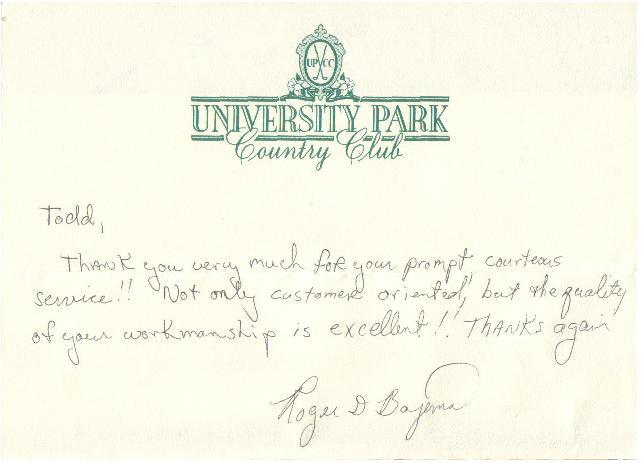 UP CC
UNIVERSITY PARK
Country Club
Todd,
Thank you very much for your prompt, courteous
service!! Not only customer oriented, but the quality
of your workmanship is excellent!! Thanks again
Roger D Bajema